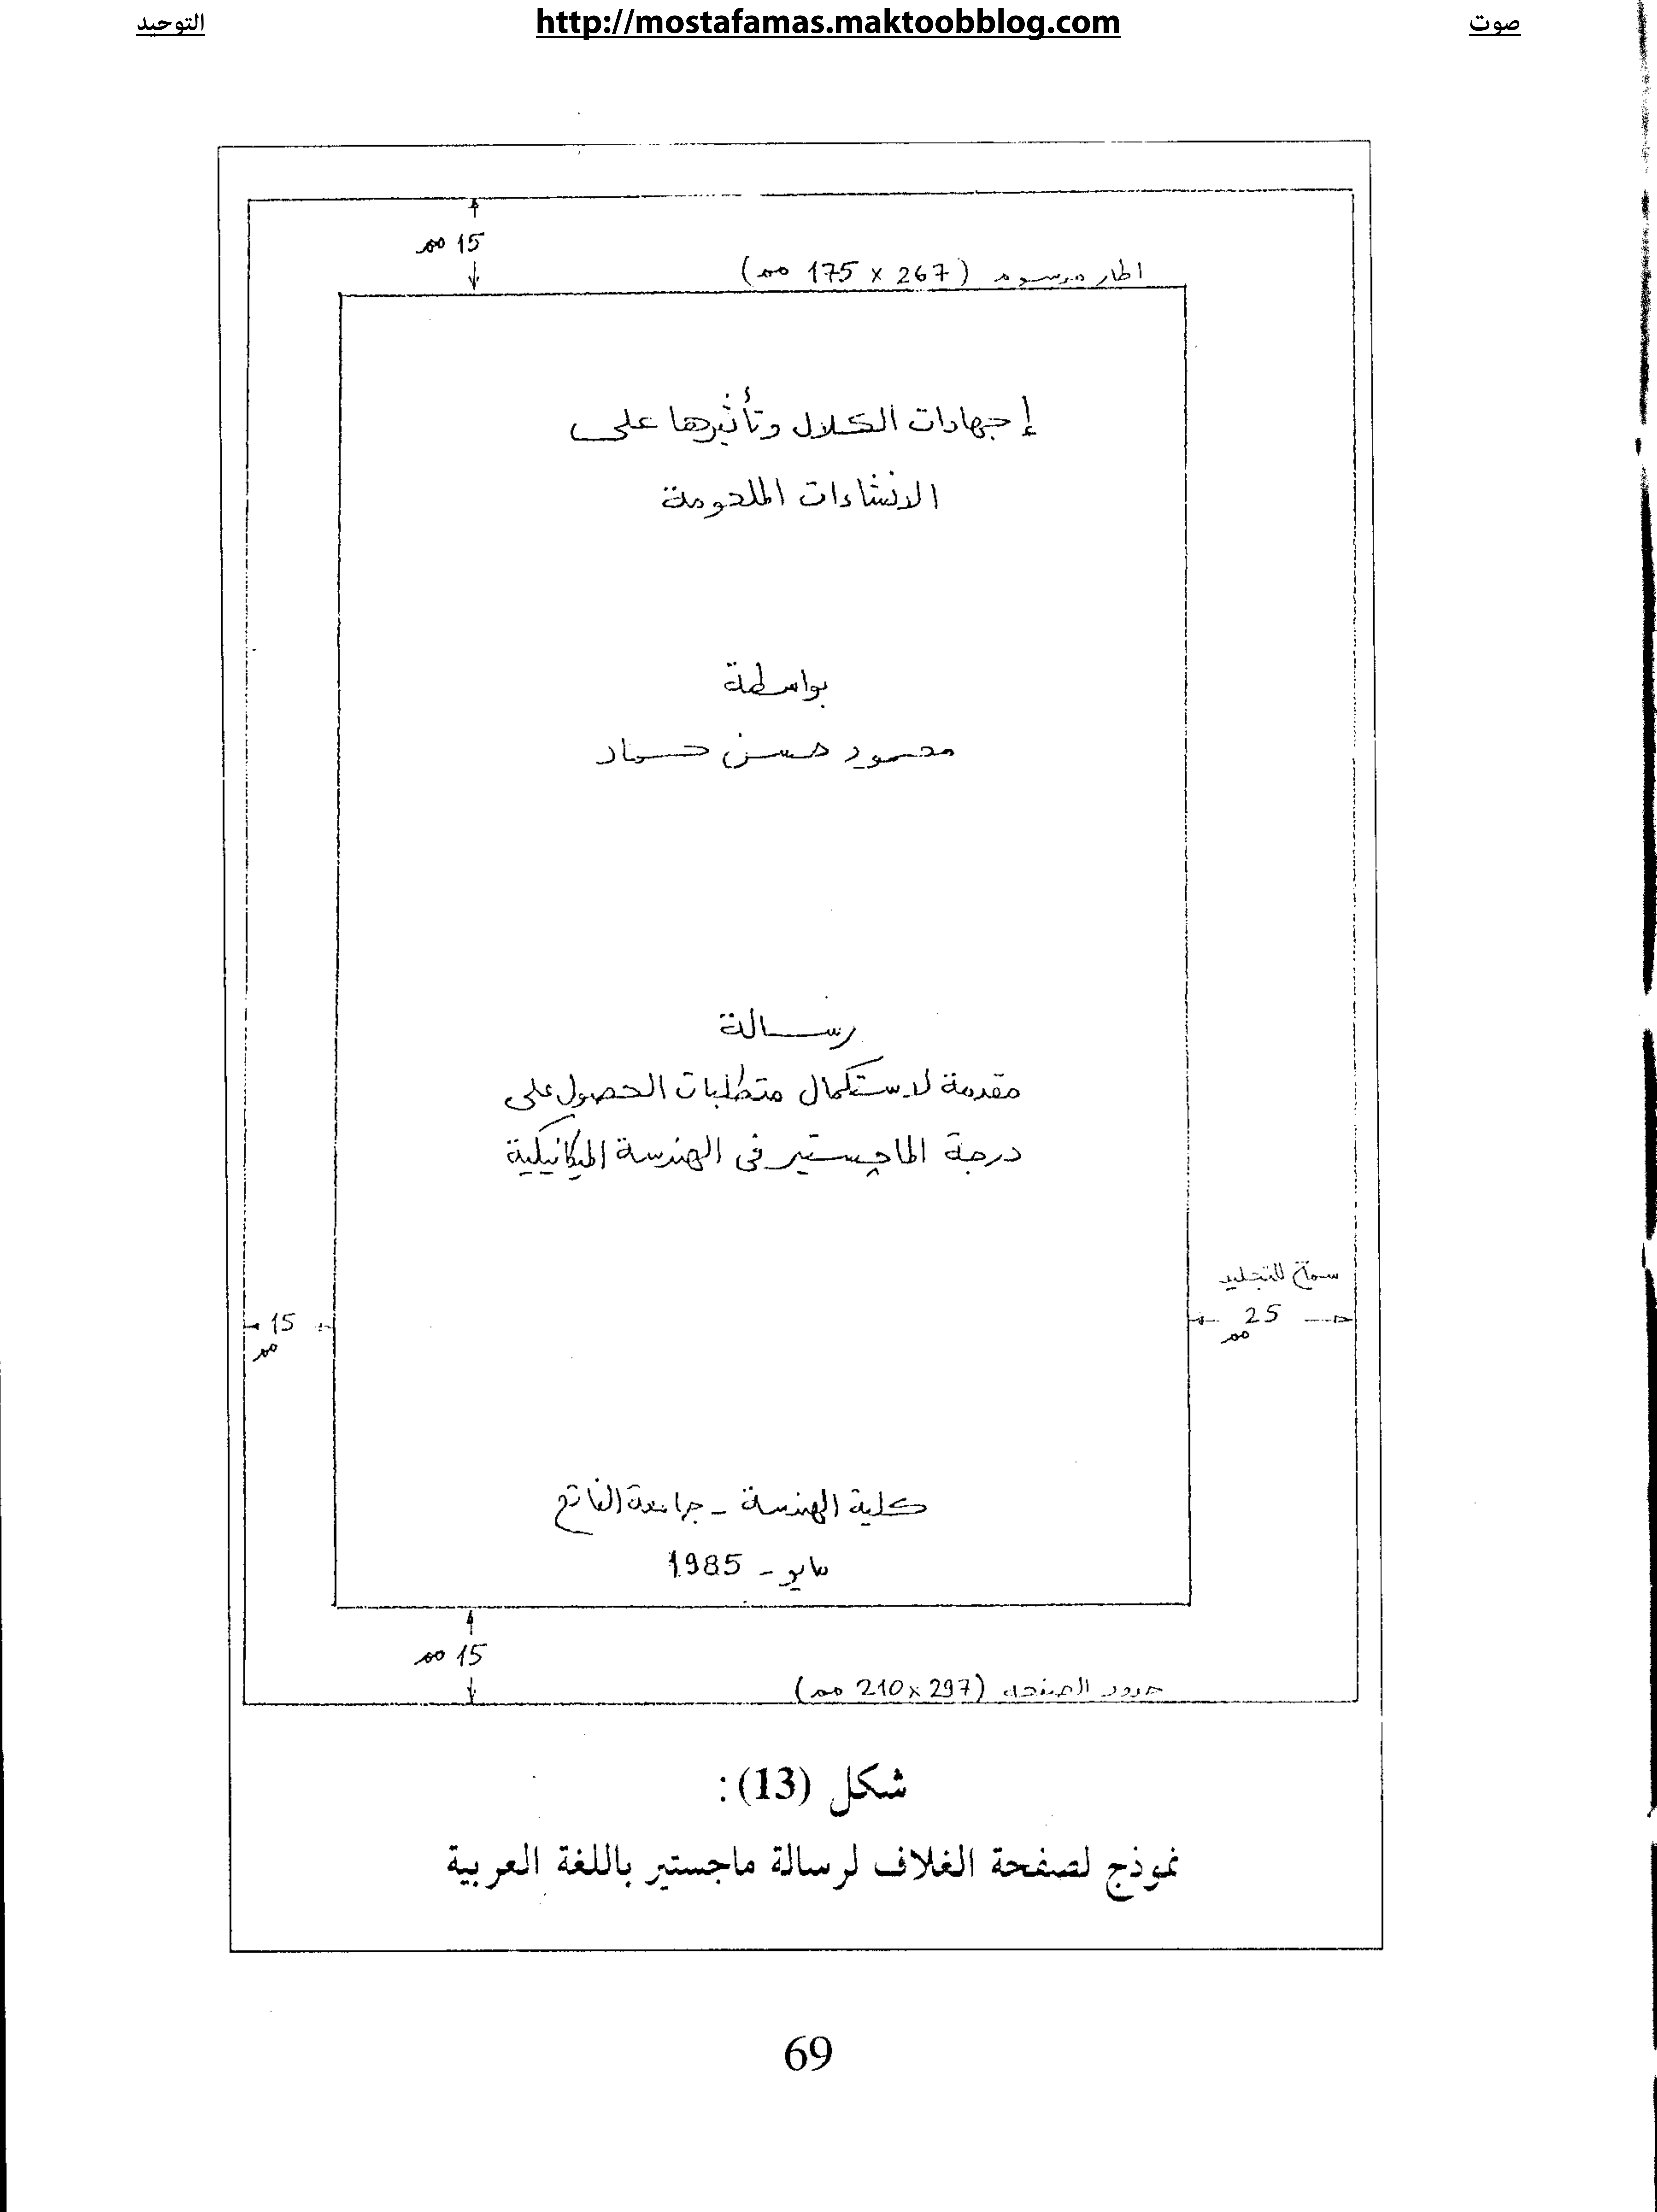 صوت http://mostafamas.maktoobblog.com التوحيد
15 مم
اطار مرسوم (267 x 175 مم)
إجهادات الكلال وتأثيرها على
الانشاءات الملحومة
بواسطة
محمود حسن حماد
رسالة
مقدمة لاستكمال متطلبات الحصول على
درجة الماجستير في الهندسة الميكانيكية
للتجليد
25
مم
15
مم
كلية الهندسة - جامعة الفاتح
مايو - 1985
15 مم
حدود الصفحه (297 x 210 مم)
شكل (13) :
نموذج لصفحة الغلاف لرسالة ماجستير باللغة العربية
69